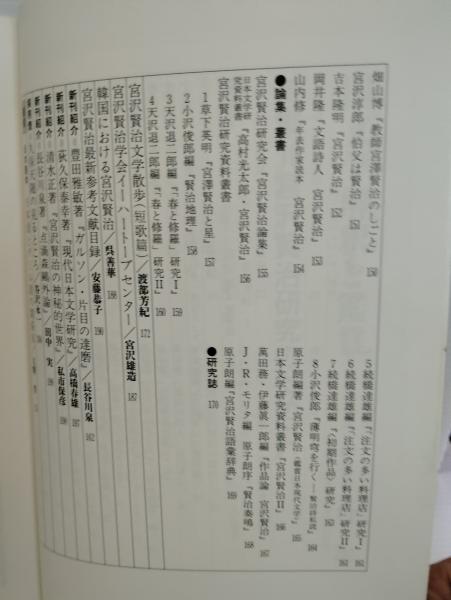 畑山博『教師宮澤賢治のしごと』 150
宮沢淳郎『伯父は賢治』 151
吉本隆明『宮沢賢治』 152
岡井隆『文語詩人 宮沢賢治』 153
山内修『年表作家読本 宮沢賢治』 154
●論集・叢書
宮沢賢治研究会『宮沢賢治論集』 155
日本文学研究資料叢書『高村光太郎・宮沢賢治』 156
宮沢賢治研究資料叢書
1 草下英明『宮澤賢治と星』 157
2 小沢俊郎編『賢治地理』 158
3 天沢退二郎編『「春と修羅」研究Ⅰ』 159
4 天沢退二郎編『「春と修羅」研究Ⅱ』 160
5 続橋達雄編『「注文の多い料理店」研究Ⅰ』 161
6 続橋達雄編『「注文の多い料理店」研究Ⅱ』 162
7 続橋達雄編『〈初期作品〉研究』 163
8 小沢俊郎『薄明穹を行く―賢治詩私読』 164
原子朗編著『宮沢賢治〈鑑賞日本現代文学〉』 165
日本文学研究資料叢書『宮沢賢治Ⅱ』 166
萬田務・伊藤眞一郎編『作品論 宮沢賢治』 167
J・R・モリタ編 原子朗序『賢治奏鳴』 168
原子朗編『宮沢賢治語彙辞典』 169
●研究誌 170
宮沢賢治文学散歩(短歌篇)/渡部芳紀 172
宮沢賢治学会イーハトーブセンター/宮沢雄造 187
韓国における宮沢賢治/呉善華 188
宮沢賢治最新参考文献目録/安藤恭子 190
新刊紹介 豊田雅敏著『ガルソン・片目の達磨』/長谷川泉 162
新刊紹介 荻久保泰幸著『現代日本文学研究』/高橋春雄
新刊紹介 清水正著『宮沢賢治の神秘的世界』/私市保彦
新刊紹介 長谷川泉著『点滴森鷗外論』/田中実